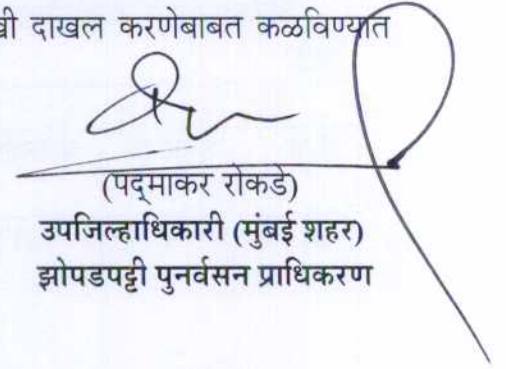 दाखल करणेबाबत कळविण्यात
(पद्माकर रोकडे)
उपजिल्हाधिकारी (मुंबई शहर)
झोपडपट्टी पुनर्वसन प्राधिकरण